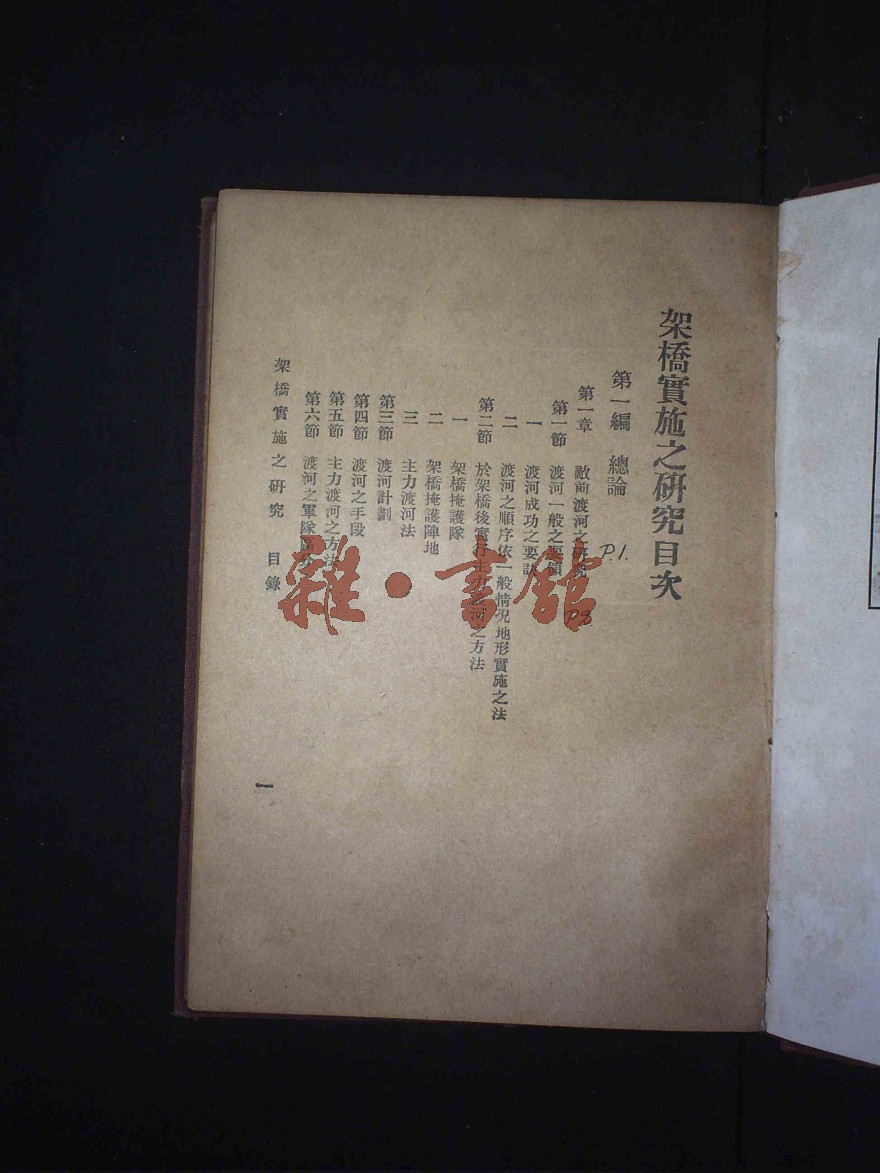 架橋實施之研究目次
第一編 總論 P.1.
第一章 敵前渡河之研究
第一節 渡河一般之要領 P8
一 渡河成功之要訣
二 渡河之順序依一般情況地形實施之法
第二節 於架橋後實行主力渡河之方法
一 架橋掩護隊
二 架橋掩護陣地
三 主力渡河法
第三節 渡河計劃
第四節 渡河之手段
第五節 主力渡河之方法
第六節 渡河之軍隊區分
架橋實施之研究 目錄
一
雜·書館